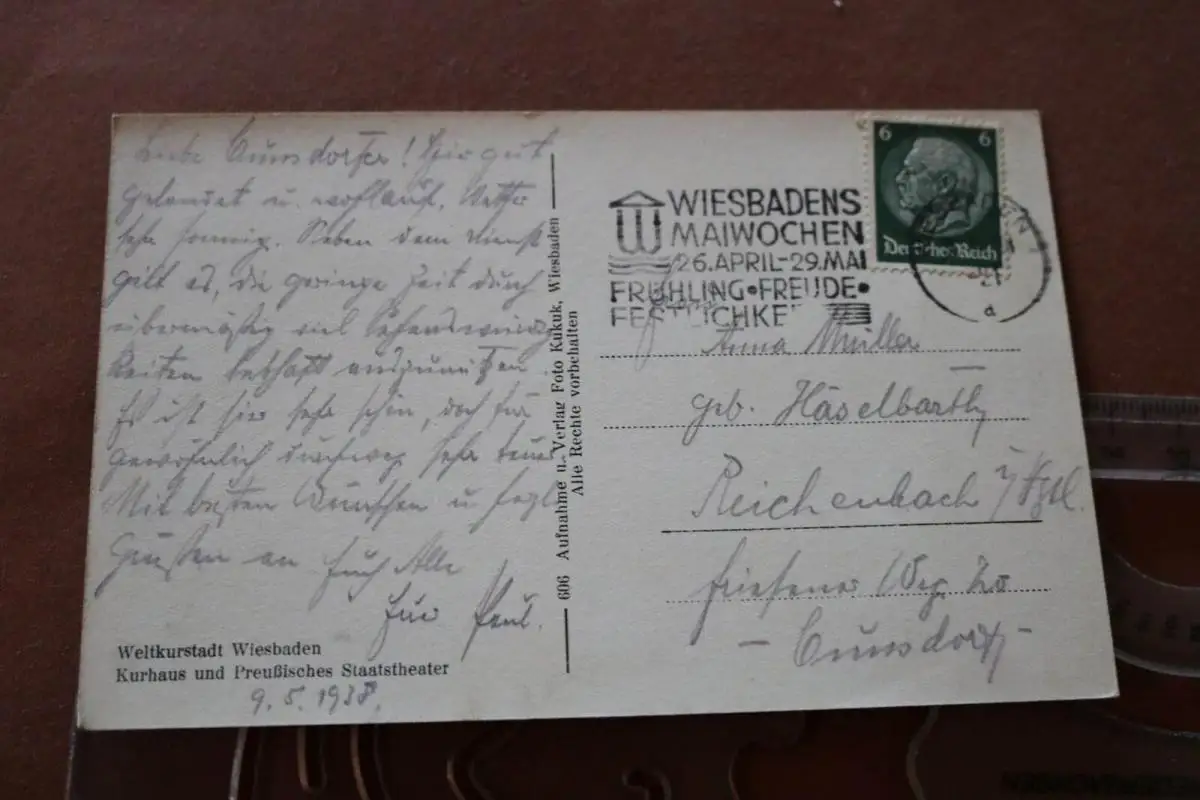 Liebe Cunsdorfer! Hier gut
gelandet u. wohlauf. Wetter
sehr sonnig. Neben dem Dienst
gilt es, die geringe Zeit durch
übermäßig viel Sehenswürdig
keiten lebhaft auszunützen.
Es ist hier sehr schön, doch für
gewöhnlich durchweg sehr teuer
Mit besten Wünschen u. herzl.
Grüßen an Euch Alle
Euer Paul.
Weltkurstadt Wiesbaden
Kurhaus und Preußisches Staatstheater
9.5.1938.
606 Aufnahme u. Verlag Foto Kukuk, Wiesbaden
Alle Rechte vorbehalten
WIESBADENS
MAIWOCHEN
26.APRIL-29.MAI
FRÜHLING•FREUDE•
FESTLICHKE
6 6
Deutsches Reich
21
d
Anna Müller
geb. Häselbarth
Reichenbach i/Vgtl.
Friesener Weg 20
- Cunsdorf -